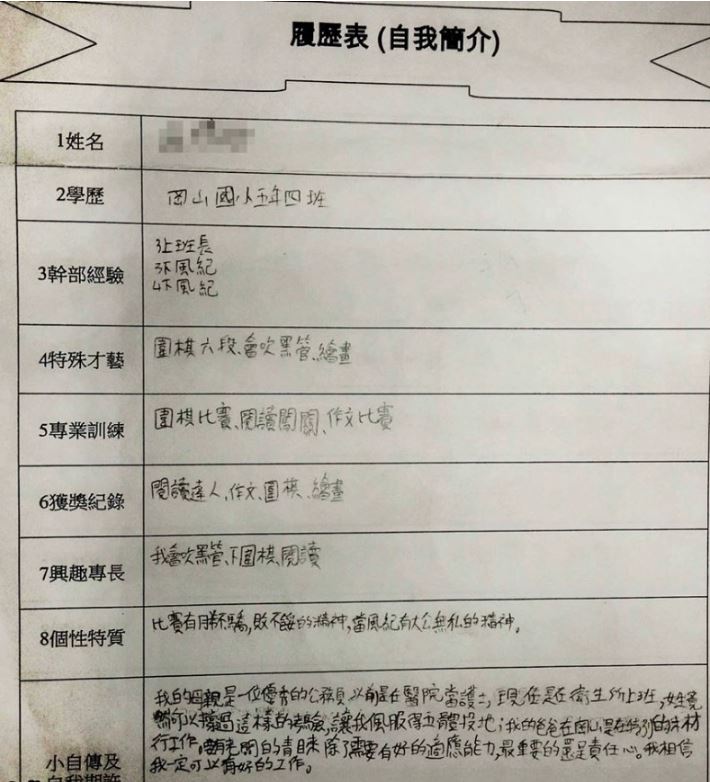 履歷表 (自我簡介)
1姓名
2學歷
岡山國小五年四班
3幹部經驗
3上班長
3下風紀
4下風紀
4特殊才藝
圍棋六段、會吹黑管、繪畫
5專業訓練
圍棋比賽、閱讀闖關、作文比賽
6獲獎紀錄
閱讀達人、作文、圍棋、繪畫
7興趣專長
我會吹黑管、下圍棋、閱讀
8個性特質
比賽有勝不驕,敗不餒的精神,當風紀有大公無私的精神。
小自傳及
自我期許
我的母親是一位優秀的公務員,以前是在醫院當護士,現在是在衛生所上班,她竟
然可以撐過這樣的考驗,讓我佩服得五體投地;我的爸爸在岡山
行工作。要老闆的青睞除了需要有好的適應能力,最重要的還是責任心。我相信
我一定可以有好的工作。